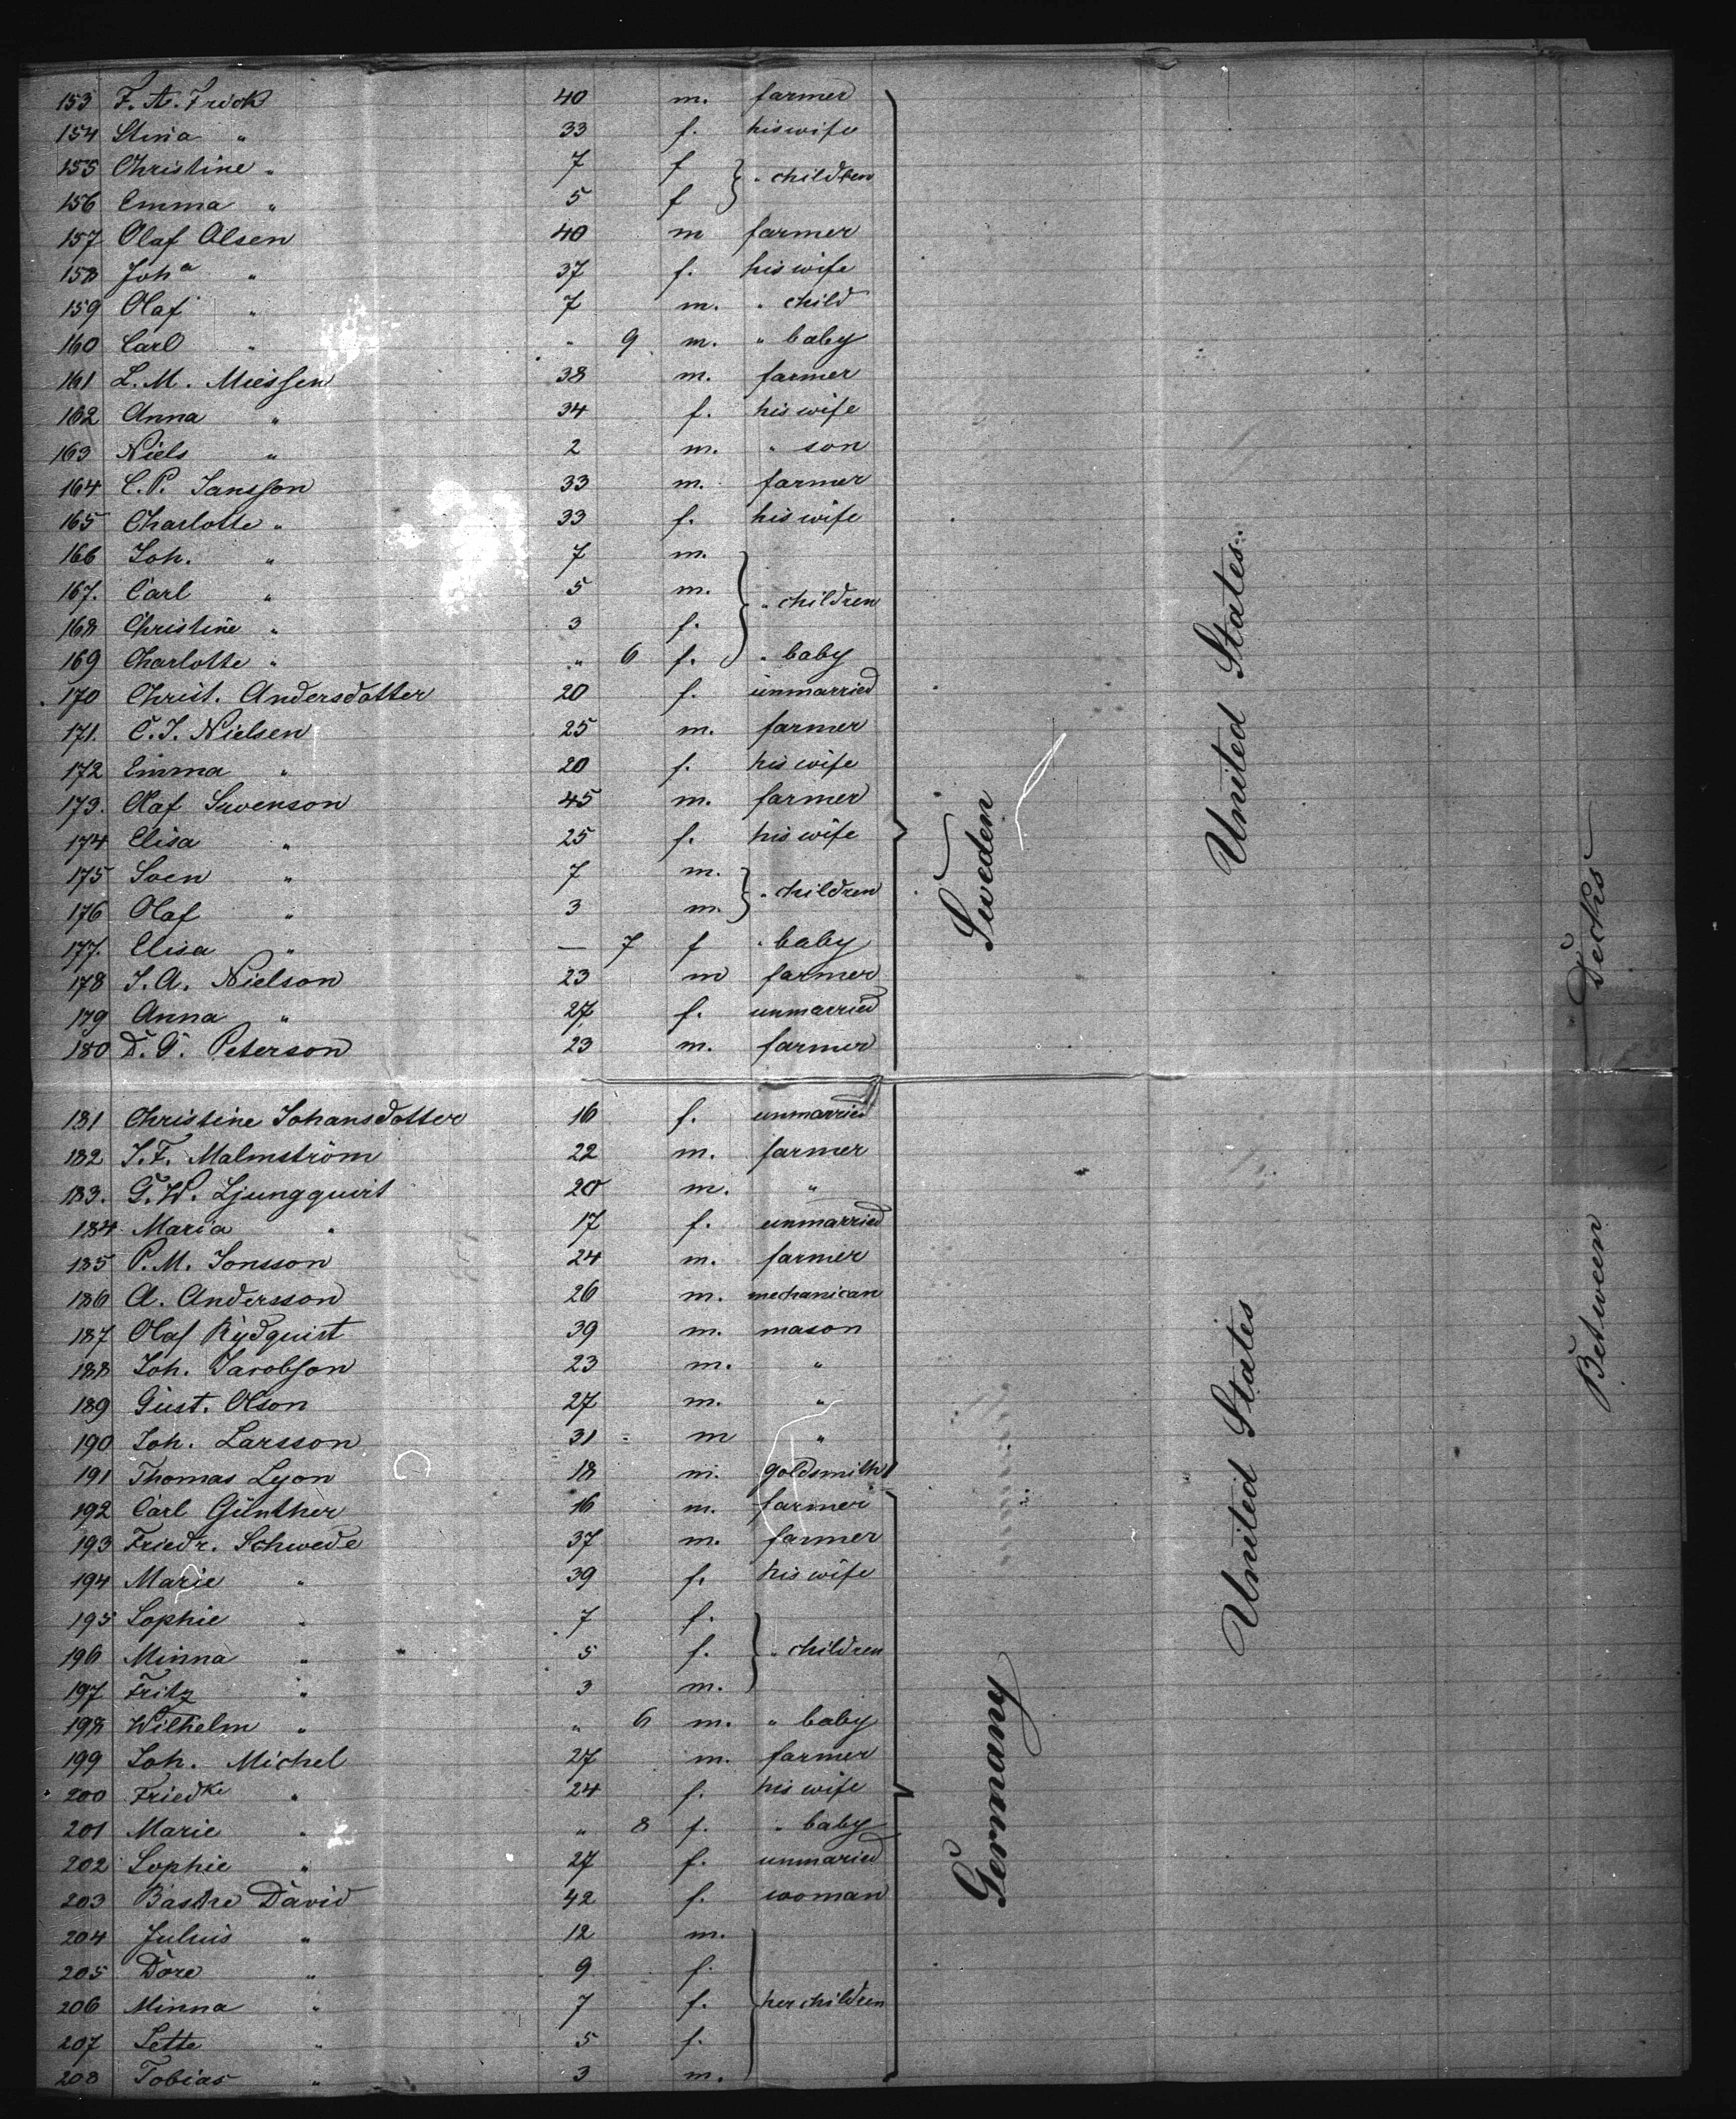 153 F. A. Frick 40 m. farmer
154 Stina " 33 f. his wife
155 Christine " 7 f
" children
156 Emma " 5 f
157 Olaf Olsen 40 m farmer
158 Joh^a " 37 f. his wife
159 Olaf " 7 m. " child
160 Carl " " 9 m. " baby
161 L. M. Miessen 38 m. farmer
162 Anna " 34 f. his wife
163 Niels " 2 m. " son
164 C. P. Jansson 33 m. farmer
165 Charlotte " 33 f. his wife
166 Joh. " 7 m.
167. Carl " 5 m.
" children
168 Christine " 3 f.
169 Charlotte " " 6 f. " baby
170 Christ. Andersdotter 20 f. unmarried
171. C. J. Nielsen 25 m. farmer
172 Emma " 20 f. his wife
173. Olaf Swenson 45 m. farmer
174 Elisa " 25 f. his wife
175 Soen " 7 m.
" children
176 Olaf " 3 m.
177. Elisa " — 7 f " baby
178 J. A. Nielson 23 m farmer
179 Anna " 27 f. unmarried
180 D. G. Peterson 23 m. farmer
Sweden
United States
Decks
181 Christine Johansdotter 16 f. unmarried
182 J. F. Malmström 22 m. farmer
183. G. W. Ljungquist 20 m. "
184 Maria " 17 f. unmarried
185 P. M. Jonsson 24 m. farmer
186 A. Andersson 26 m. mechanican
187 Olaf Rydquist 39 m. mason
188 Joh. Jacobson 23 m. "
189 Gust. Olson 27 m. "
190 Joh. Larsson 31 m "
191 Thomas Lyon 18 m. goldsmith
192 Carl Günther 16 m. farmer
193 Friedr. Schwede 37 m. farmer
194 Marie " 39 f. his wife
195 Sophie " 7 f.
196 Minna " 5 f. " children
197 Fritz " 3 m.
198 Wilhelm " " 6 m. " baby
199 Joh. Michel 27 m. farmer
200 Fried^ke " 24 f. his wife
201 Marie " " 8 f. " baby
202 Sophie " 27 f. unmaried
203 David 42 f. woman
204 Julius " 12 m.
205 Dore " 9 f.
206 Minna " 7 f. her children
207 Jette " 5 f.
208 Tobias " 3 m.
Germany
United States
Between